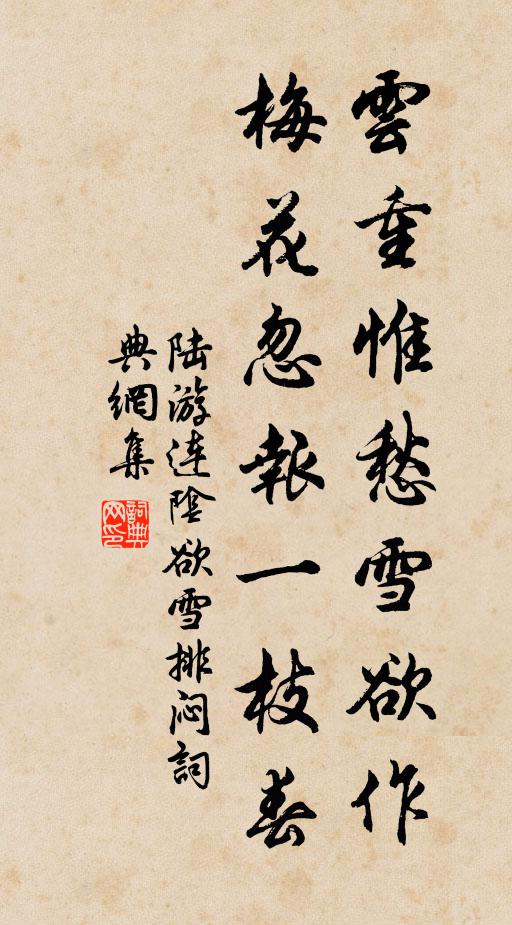 雲重惟愁雪欲作
梅花忽報一枝春
陆游连陰欲雪排闷詞
典網集
詞典
网印